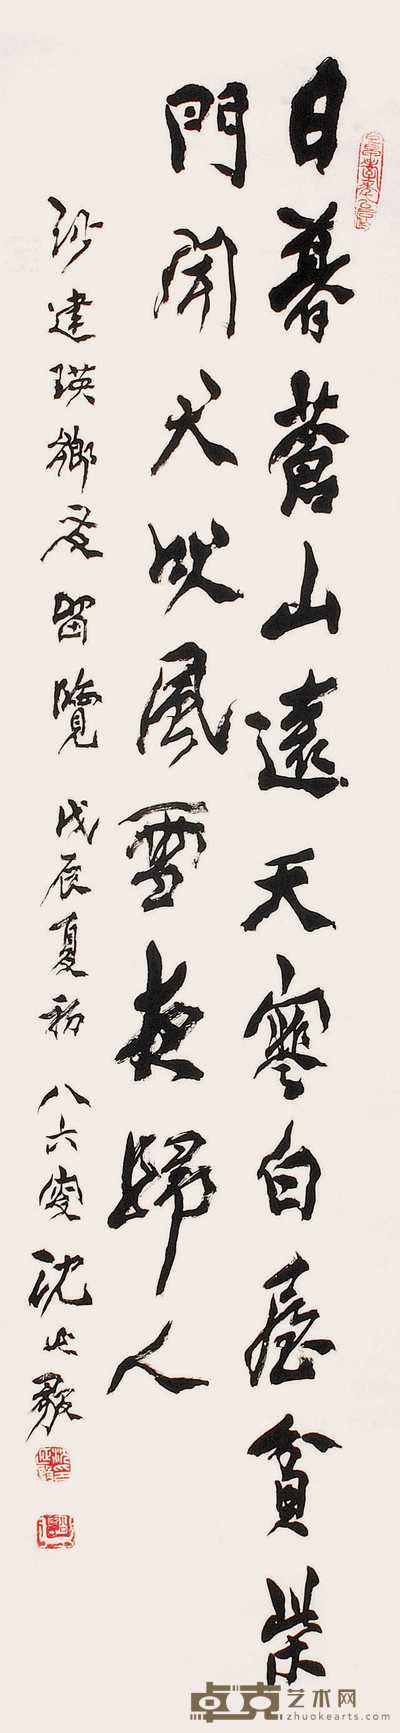 日暮蒼山遠天寒白屋貧柴
門聞犬吠風雪夜歸人
沙建瑛鄉友留覽 戊辰夏初 八六叟 沈延毅
卓克艺术网
www.zhuokearts.com